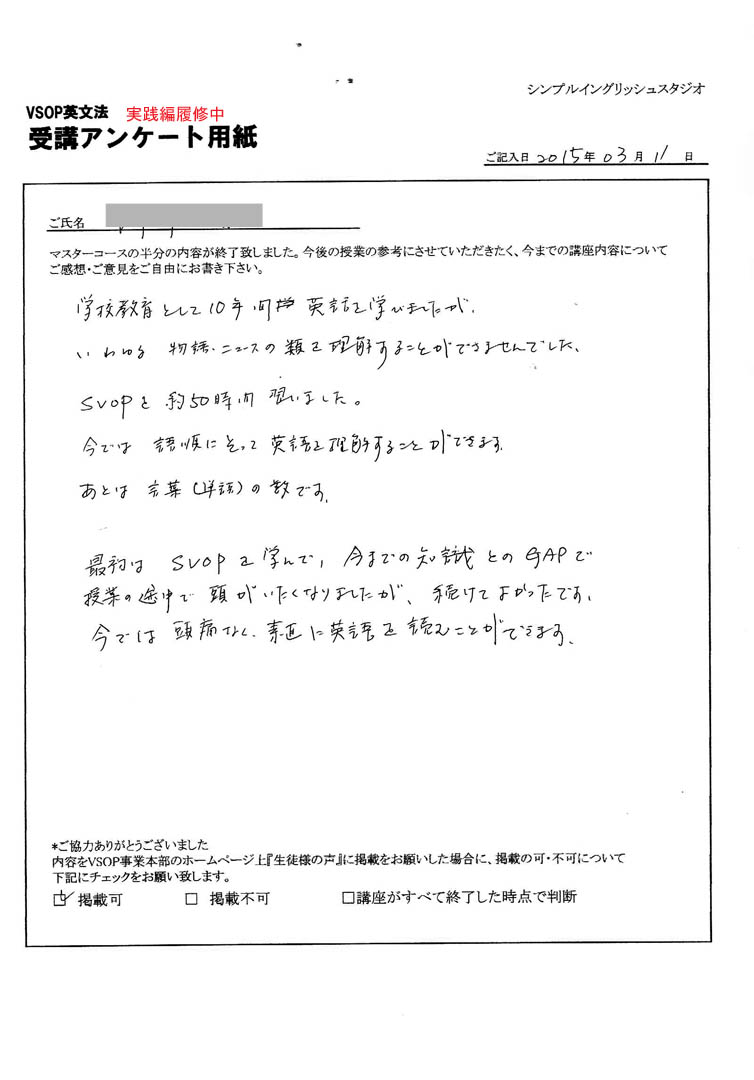 シンプルイングリッシュスタジオ
VSOP英文法 実践編履修中
受講アンケート用紙
ご記入日 2015年 03月 11日
ご氏名
マスターコースの半分の内容が終了致しました。今後の授業の参考にさせていただきたく、今までの講座内容について
ご感想・ご意見をご自由にお書き下さい。
学校教育として10年間 英語を学びましたが、
いわゆる 物語・ニュースの類を理解することができませんでした、
SVOPを 約50時間 習いました。
今では 語順にそって 英語を理解することができます。
あとは 言葉(単語)の数です。
最初は SVOPを学んで、今までの知識とのGAPで
授業の途中で頭がいたくなりましたが、続けてよかったです、
今では 頭痛なく、素直に英語を読むことができます、
*ご協力ありがとうございました
内容をVSOP事業本部のホームページ上『生徒様の声』に掲載をお願いした場合に、掲載の可・不可について
下記にチェックをお願い致します。
☑ 掲載可 □ 掲載不可 □講座がすべて終了した時点で判断